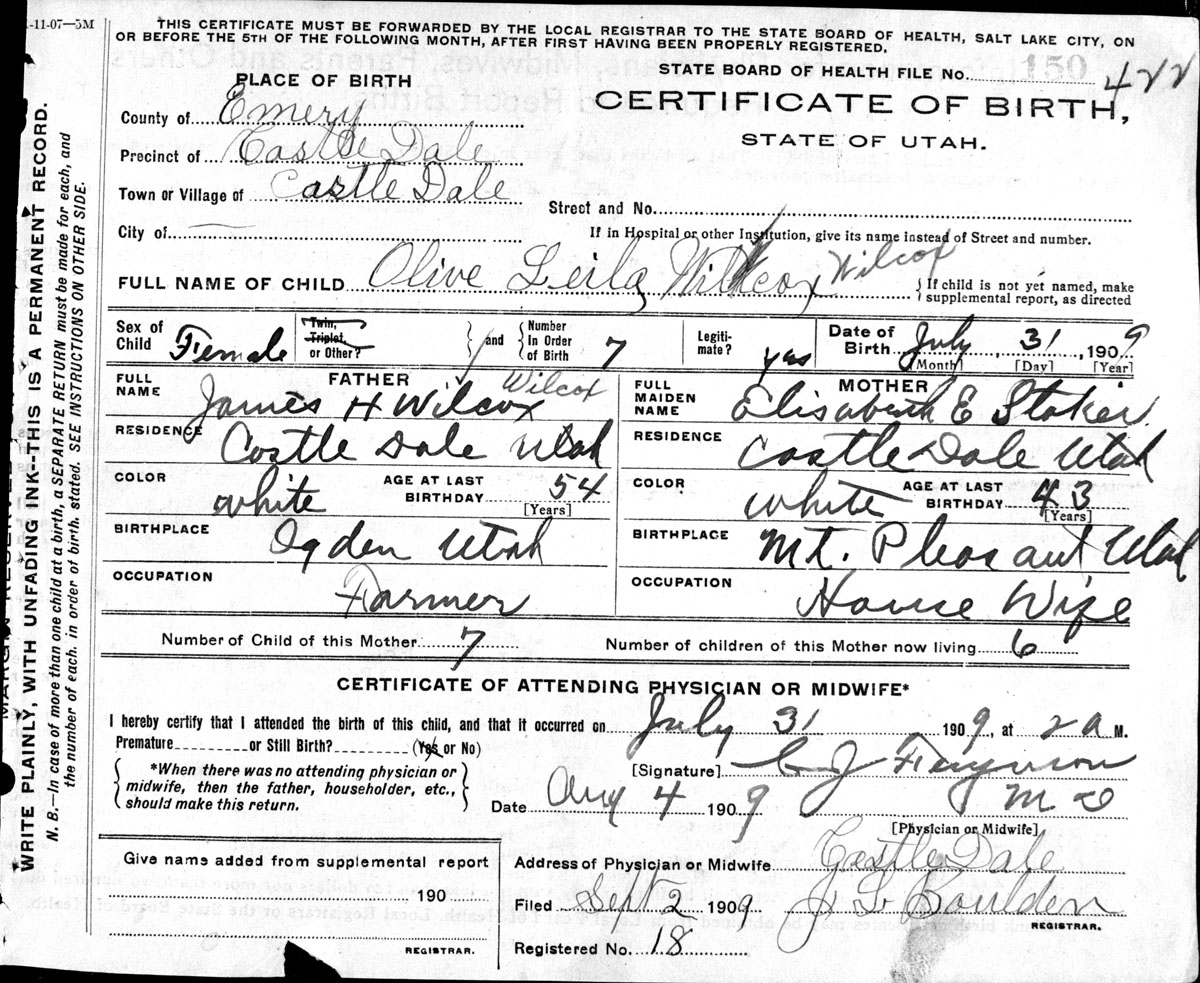 -11-07—5M
THIS CERTIFICATE MUST BE FORWARDED BY THE LOCAL REGISTRAR TO THE STATE BOARD OF HEALTH, SALT LAKE CITY, ON
OR BEFORE THE 5TH OF THE FOLLOWING MONTH, AFTER FIRST HAVING BEEN PROPERLY REGISTERED.
STATE BOARD OF HEALTH FILE No. 150 422
PLACE OF BIRTH
CERTIFICATE OF BIRTH,
STATE OF UTAH.
County of Emery
Precinct of Castle Dale
Town or Village of Castle Dale
Street and No.
City of
If in Hospital or other Institution, give its name instead of Street and number.
FULL NAME OF CHILD Olive Leila Wilcox Wilcox
If child is not yet named, make
supplemental report, as directed
Sex of Child Female
Twin, Triplet, or Other?
and
Number In Order of Birth 7
Legitimate? yes
Date of Birth July 31, 1909
[Month] [Day] [Year]
FATHER
FULL NAME James H Wilcox Wilcox
RESIDENCE Castle Dale Utah
COLOR white
AGE AT LAST BIRTHDAY 54
[Years]
BIRTHPLACE Ogden Utah
OCCUPATION Farmer
MOTHER
FULL MAIDEN NAME Elisabeth E Stoker
RESIDENCE Castle Dale Utah
COLOR white
AGE AT LAST BIRTHDAY 43
[Years]
BIRTHPLACE Mt. Pleasant Utah
OCCUPATION House Wife
Number of Child of this Mother 7
Number of children of this Mother now living 6
CERTIFICATE OF ATTENDING PHYSICIAN OR MIDWIFE*
I hereby certify that I attended the birth of this child, and that it occurred on July 31 1909, at 2 a M.
Premature or Still Birth? (Yes or No)
*When there was no attending physician or
midwife, then the father, householder, etc.,
should make this return.
[Signature] C J
M D
Date Aug 4 1909
[Physician or Midwife]
Give name added from supplemental report
190
REGISTRAR.
Address of Physician or Midwife Castle Dale
Filed Sept 2 1909
Boulden
REGISTRAR.
Registered No. 18
WRITE PLAINLY, WITH UNFADING INK--THIS IS A PERMANENT RECORD.
N. B.—In case of more than one child at a birth, a SEPARATE RETURN must be made for each, and
the number of each, in order of birth, stated. SEE INSTRUCTIONS ON OTHER SIDE.